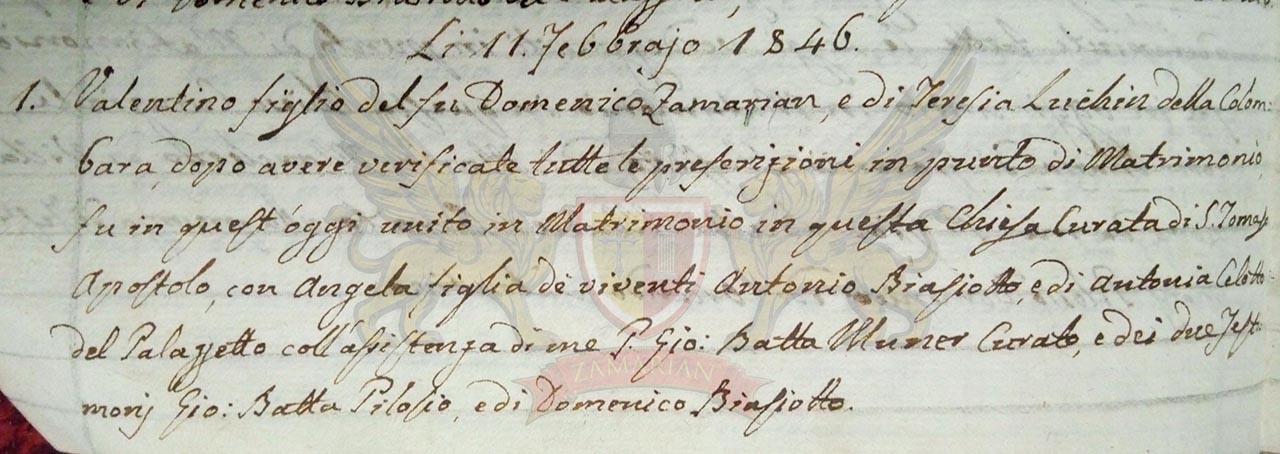 Li 11. Febbrajo 1846.
1. Valentino figlio del fu Domenico Zamarian, e di Teresia Luchin della Colom=
bara, dopo avere verificate tutte le prescrizioni in punto di Matrimonio,
fu in quest'oggi unito in Matrimonio in questa Chiesa Curata di S. Tomaso
Apostolo, con Angela figlia de viventi Antonio Biasiotto, e di Antonia Celotto
del Palazzetto coll'assistenza di me P. Gio: Batta Muner Curato, e dei due Testi=
monj Gio: Batta Pilosio, e di Domenico Biasiotto.
ZAMARIAN